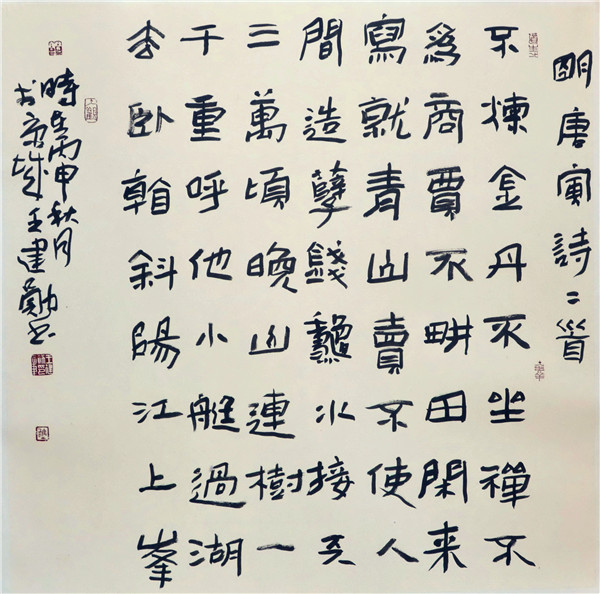 明唐寅詩二首
不煉金丹不坐禪不
爲商賈不畊田閑来
寫就青山賣不使人
間造孽錢蠡水接天
三萬頃晚山連樹一
千重呼他小艇過湖
去卧看斜陽江上峯
時在丙申秋月
於京城王建勛書